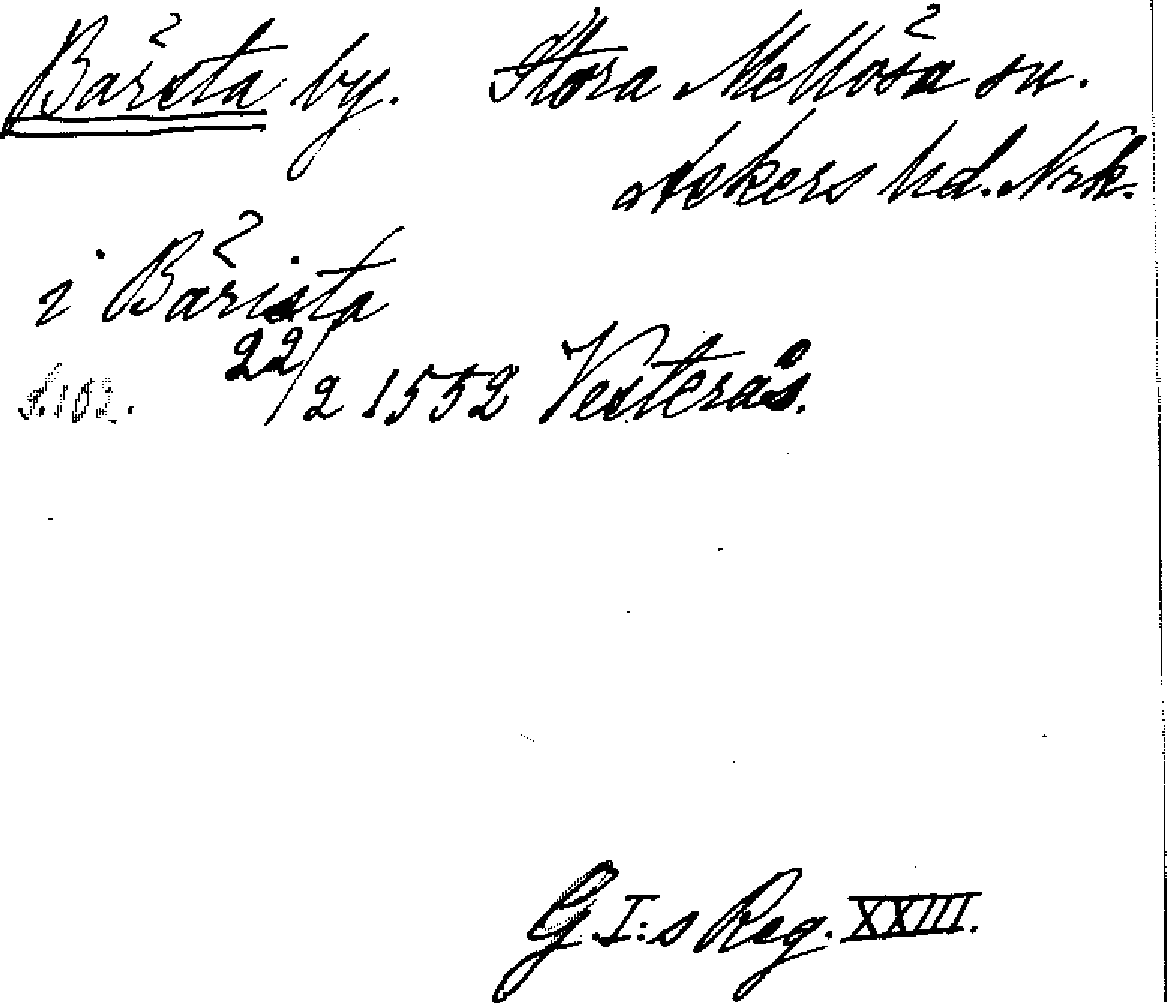 Bärsta by. Stora Mellösa sn.
Askers hd. Nrk.
i Bärista
S. 102. 22/2 1552 Vesterås.
G. I:s Reg. XXIII.